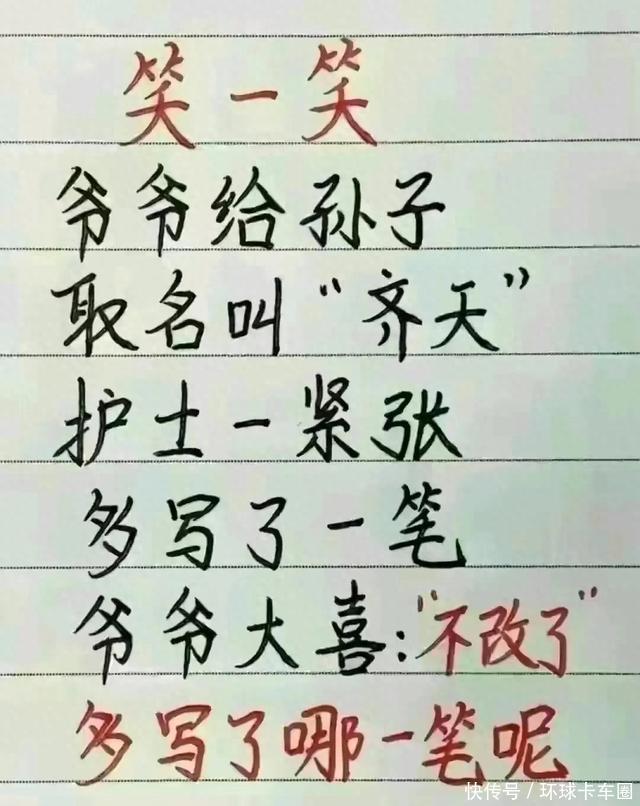 笑一笑
爷爷给孙子
取名叫“齐天”
护士一紧张
多写了一笔
爷爷大喜:“不改了”
多写了哪一笔呢
快传号/环球卡车圈